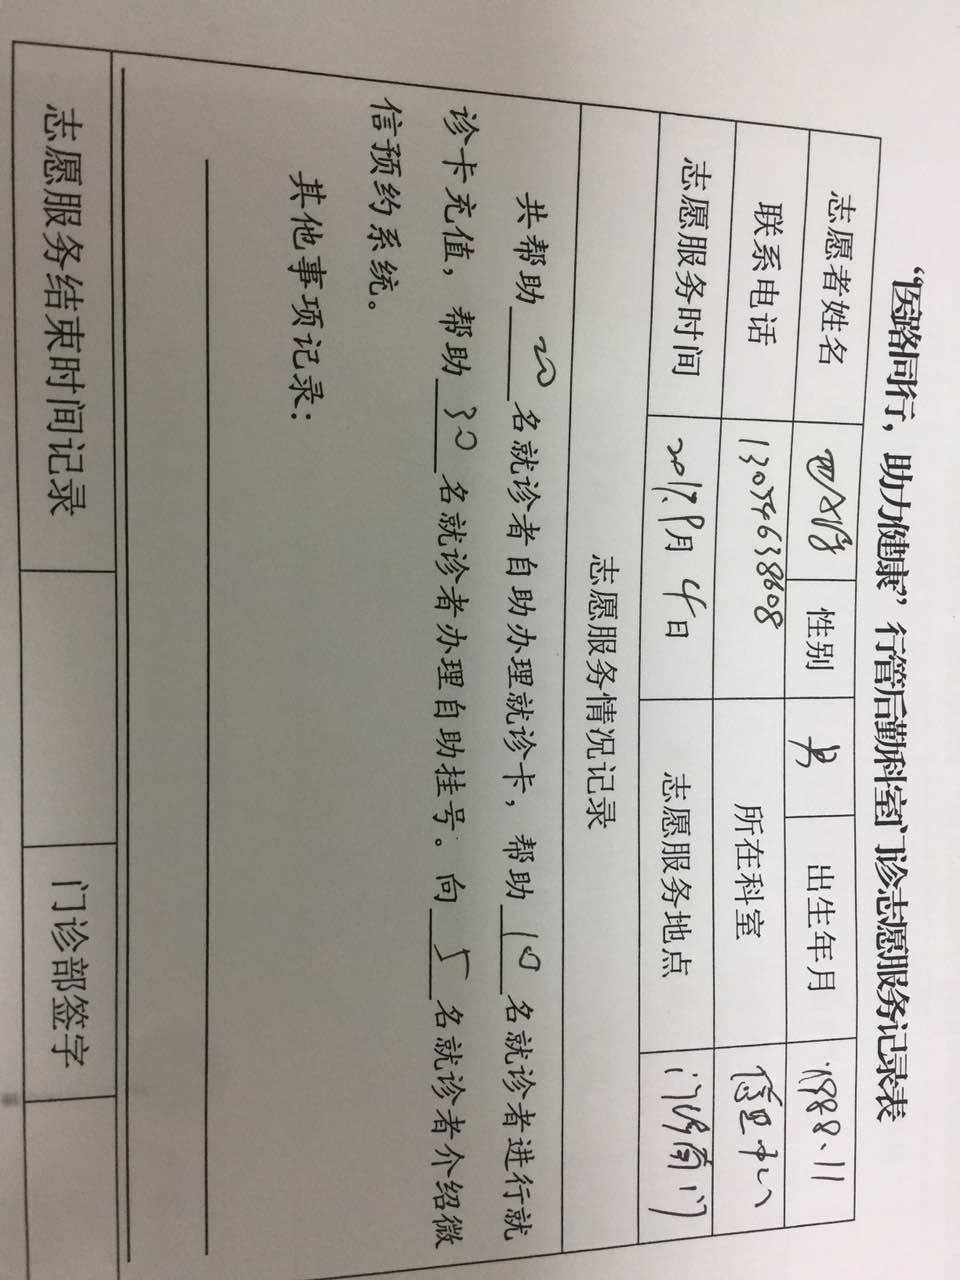 “医路同行，助力健康”行管后勤科室门诊志愿服务记录表
志愿者姓名 性别 男 出生年月 1988.11
联系电话 13054638608 所在科室 信息中心
志愿服务时间 2017.9月4日 志愿服务地点 门诊南门
志愿服务情况记录
共帮助20名就诊者自助办理就诊卡，帮助10名就诊者进行就
诊卡充值，帮助30名就诊者办理自助挂号。向5名就诊者介绍微
信预约系统。
其他事项记录：
志愿服务结束时间记录 门诊部签字